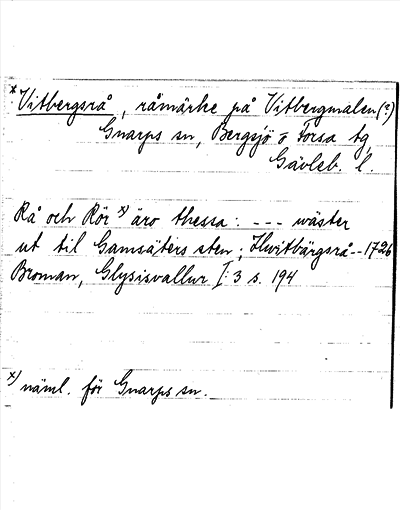 x Vitbergsrå, råmärke på Vitbergmalen (?)
Gnarps sn, Bergsjö o Forsa tg,
Gävleb. l.
Rå och Rör x) äro thessa: --- wäster
ut til Gamsäters sten; Hwitbärgsrå -- 1726
Broman, Glysisvallur I: 3 s. 194
x) näml. för Gnarps sn.